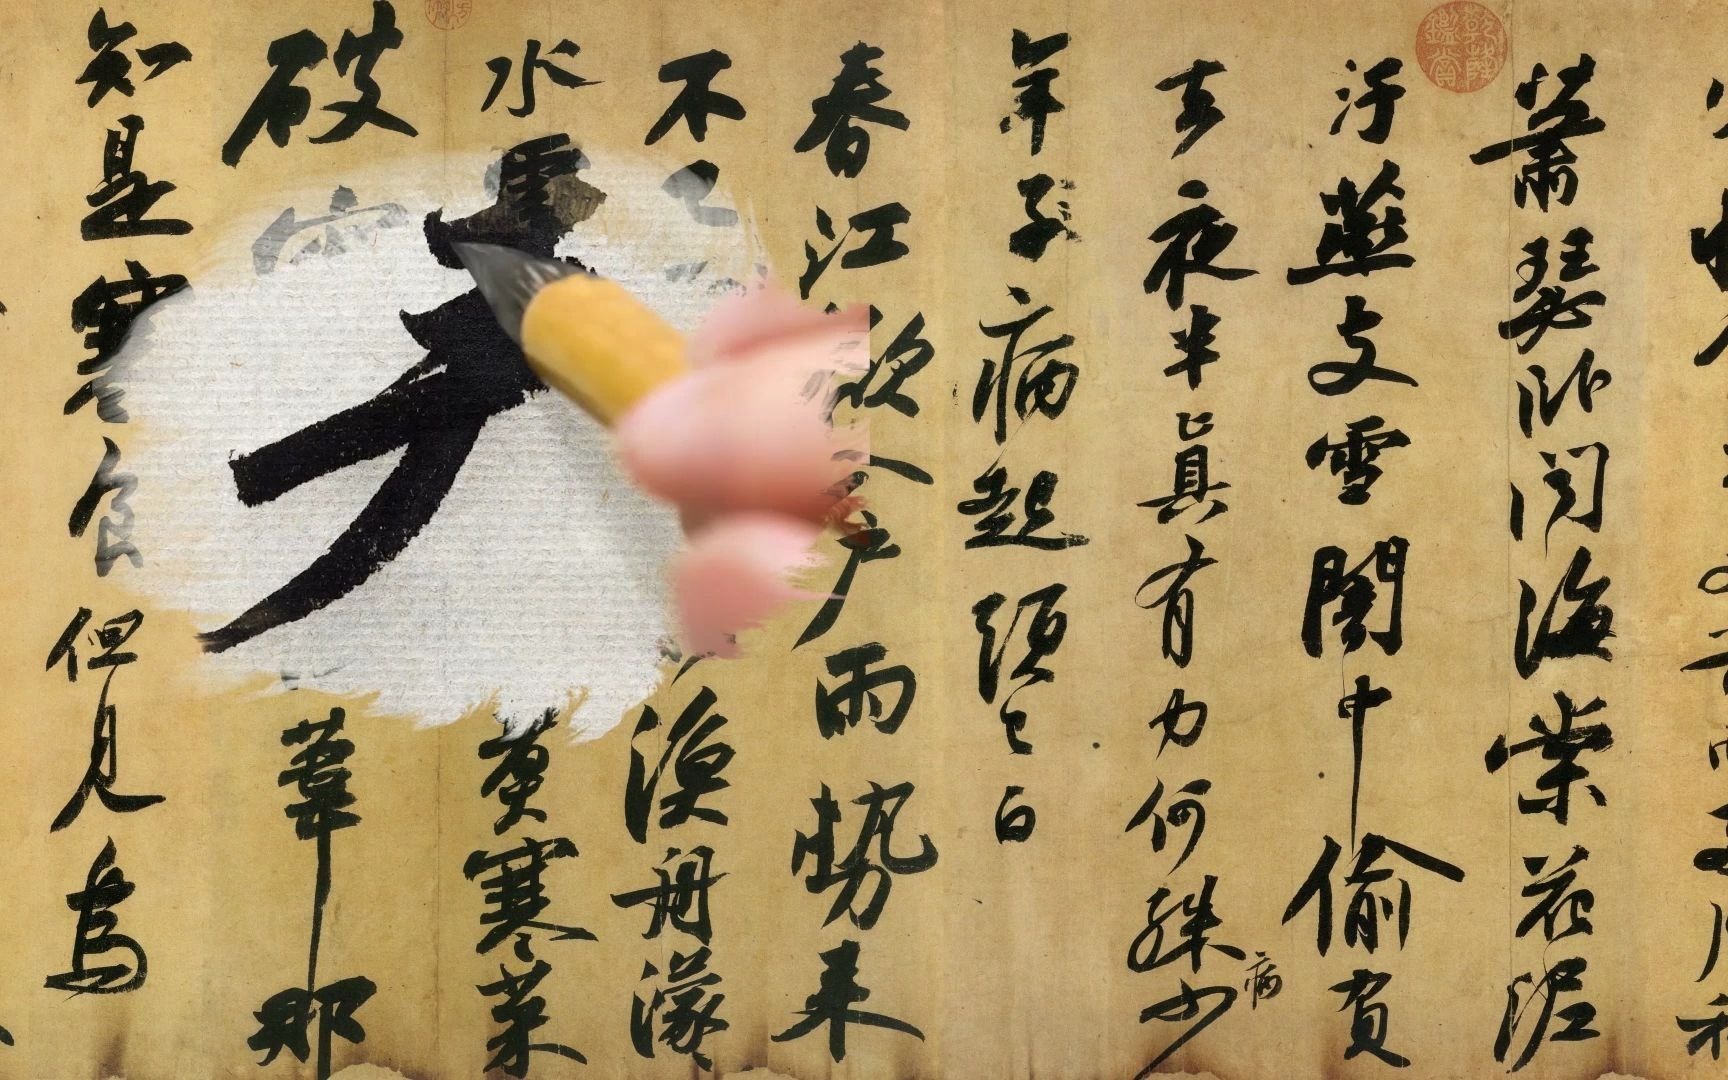 乾隆鑑賞
蕭瑟卧聞海棠花泥
汙燕支雪闇中偷負
去夜半真有力何殊少
病
年子病起頭已白
春江欲入戶雨勢來
不已漁舟濛
水雲煮寒菜
破竈葦那
知是寒食但見烏